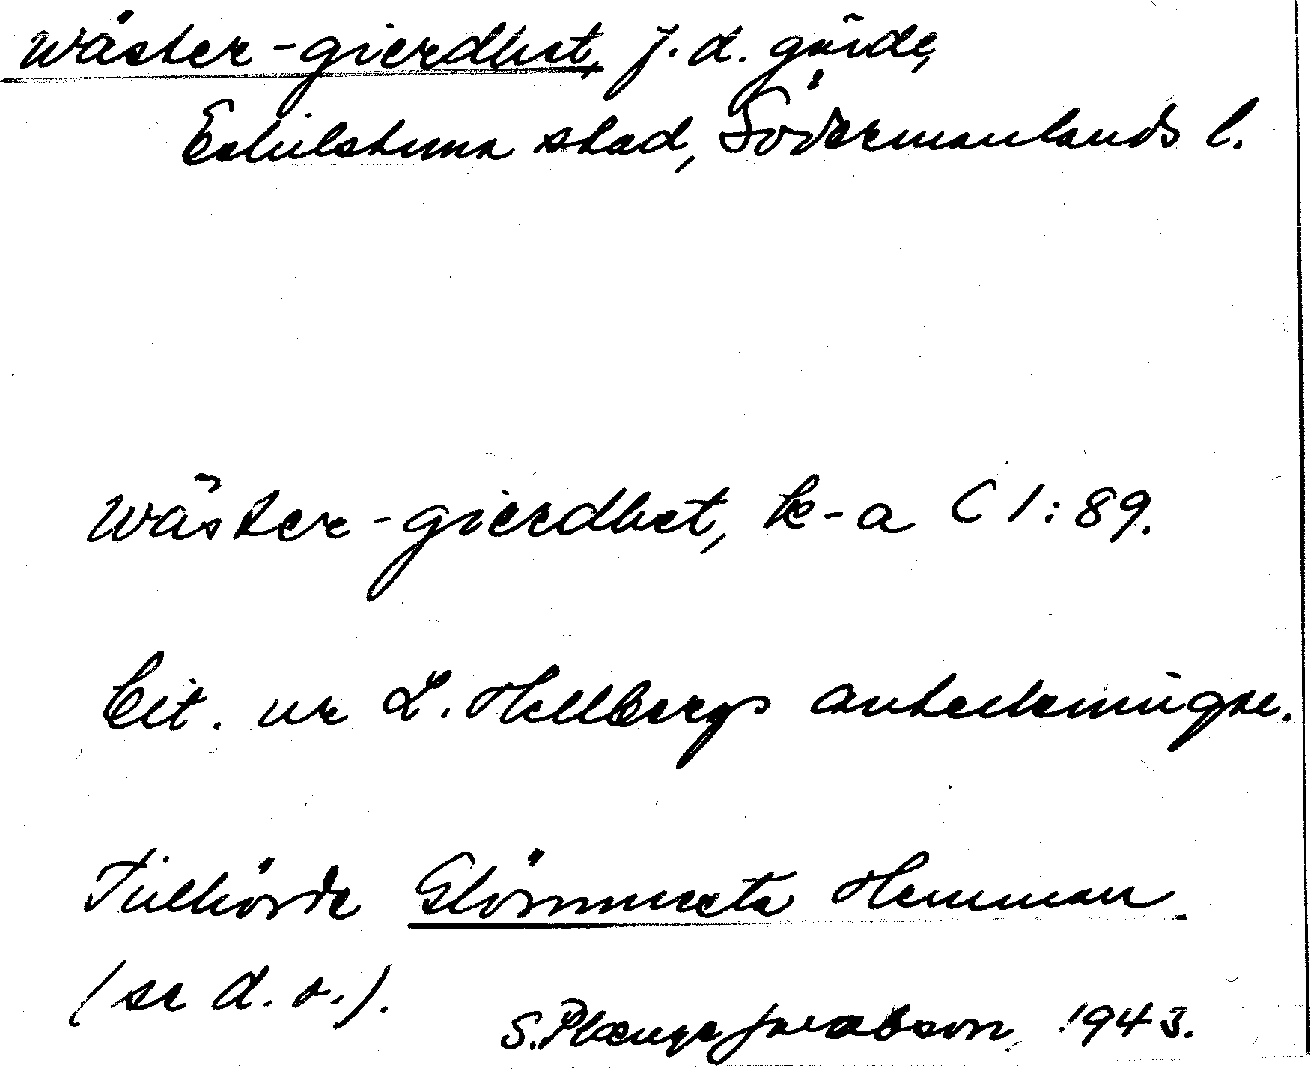 Wäster-gierdhet, f.d. gärde,
Eskilstuna stad, Södermanlands l.
Wäster-gierdhet, k-a C 1:89.
Cit. ur L. Hellbergs anteckningar.
Tillhörde Glömmesta Hemman.
(se d.o.).
S. Plænge Jacobson, 1943.